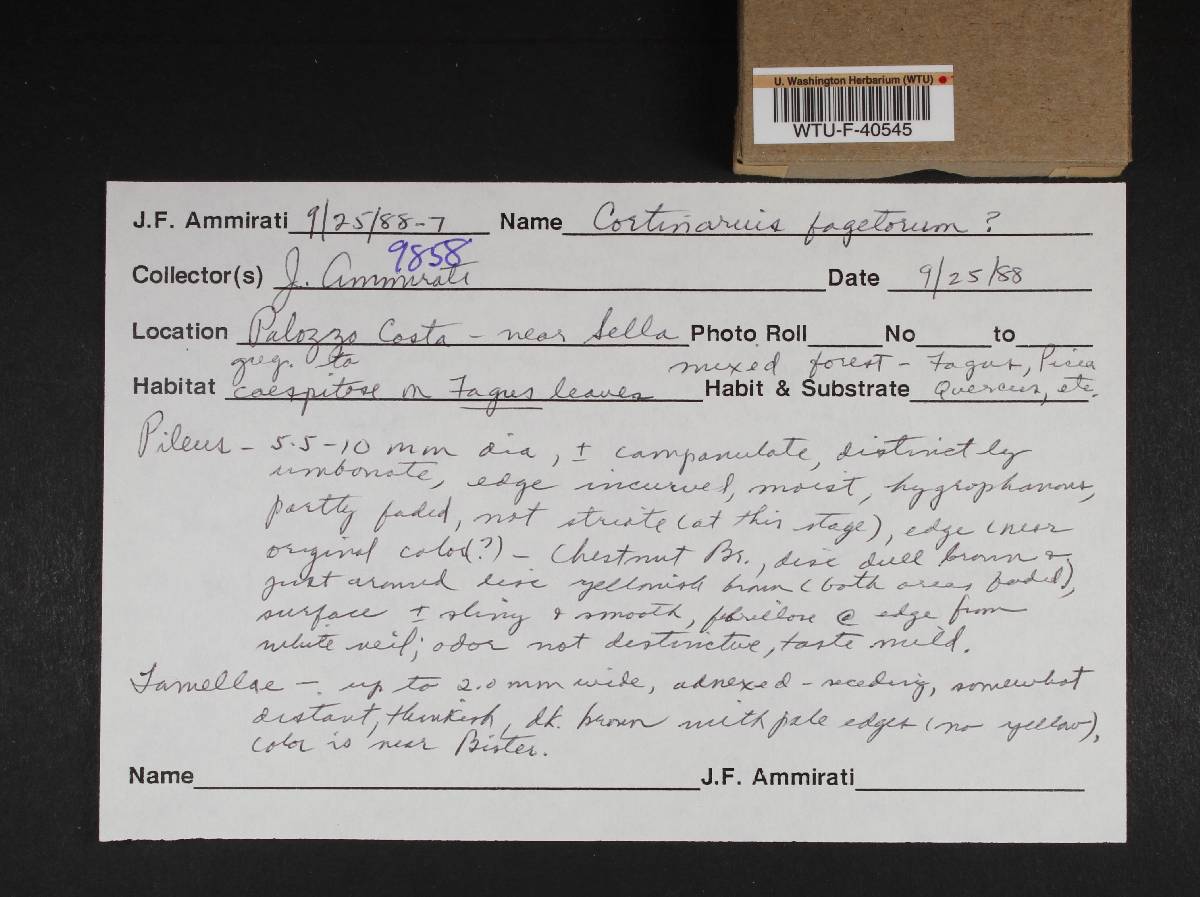 U. Washington Herbarium (WTU)
WTU-F-40545
J.F. Ammirati 9/25/88-7 Name Cortinarius fagetorum ?
9858
Collector(s) J. Ammirati Date 9/25/88
Location Palozzo Costa - near Sella Photo Roll No to
greg. to mixed forest - Fagus, Picea
Habitat caespitose on Fagus leaves Habit & Substrate Quercus, etc.
Pileus - 5.5-10 mm dia, ± campanulate, distinctly
umbonate, edge incurved, moist, hygrophanous,
partly faded, not striate (at this stage), edge (near
original color?) - Chestnut Br., disc dull brown &
just around disc yellowish brown (both areas faded),
surface ± shiny & smooth, fibrillose @ edge from
white veil; odor not distinctive, taste mild.
Lamellae - up to 2.0 mm wide, adnexed - seceding, somewhat
distant, thinkish, dk. brown with pale edges (no yellow),
color is near Bister.
Name J.F. Ammirati